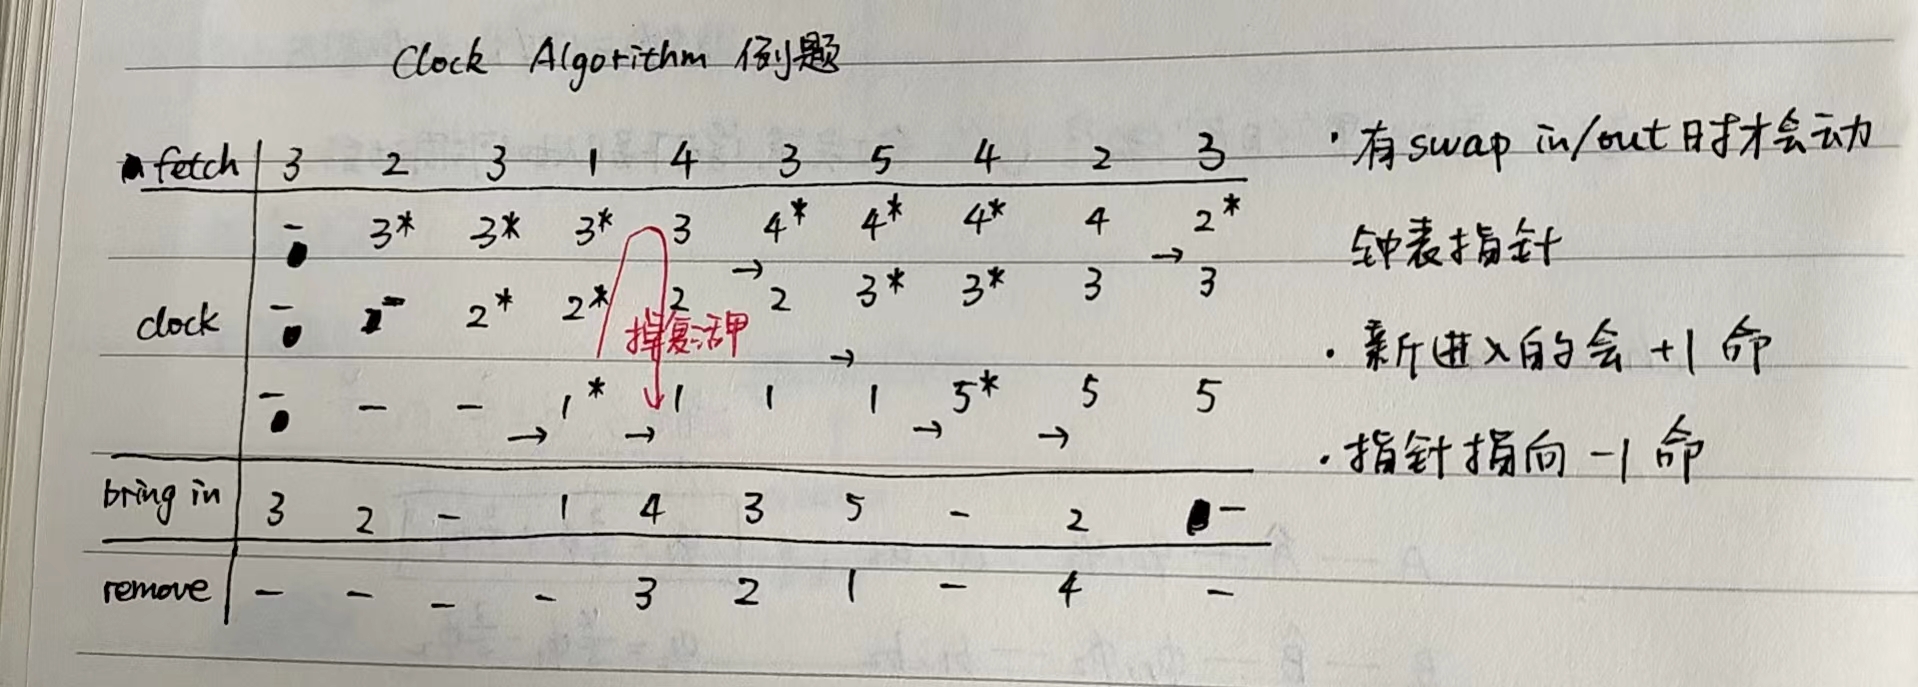 Clock Algorithm 例题
fetch 3 2 3 1 4 3 5 4 2 3
- 3* 3* 3* 3 4* 4* 4* 4 2*
→ →
clock - - 2* 2* 2 2 3* 3* 3 3
掉复活甲
→
- - - 1* 1 1 1 5* 5 5
→ → → →
bring in 3 2 - 1 4 3 5 - 2 -
remove - - - - 3 2 1 - 4 -
· 有 swap in/out 时才会动
钟表指针
· 新进入的会 +1 命
· 指针指向 -1 命